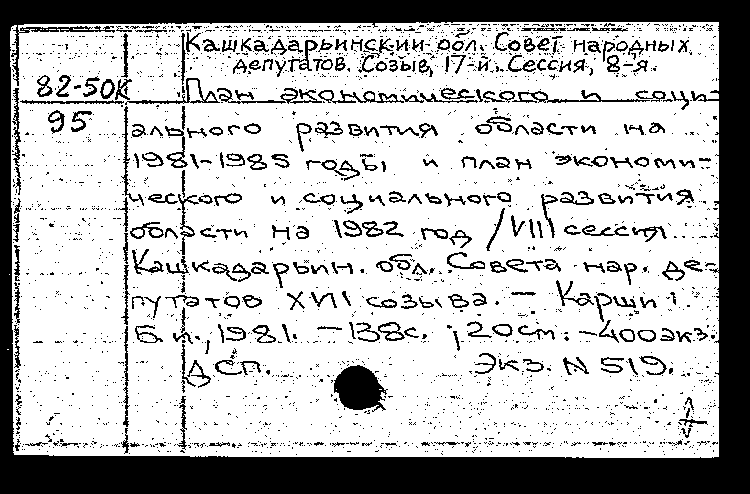 Кашкадарьинский обл. Совет народных
депутатов. Созыв, 17-й. Сессия, 8-я.
82-50К
План экономического и соци-
95
ального развития области на
1981-1985 годы, и план экономи-
ческого и социального развития
области на 1982 год /VIII сессия
Кашкадарьин. обл. Совета нар. де-
путатов XVII созыва. – Карши:
Б.и., 1981. – 138с. ; 20см. – 400экз.
ДСП. Экз. N 519.